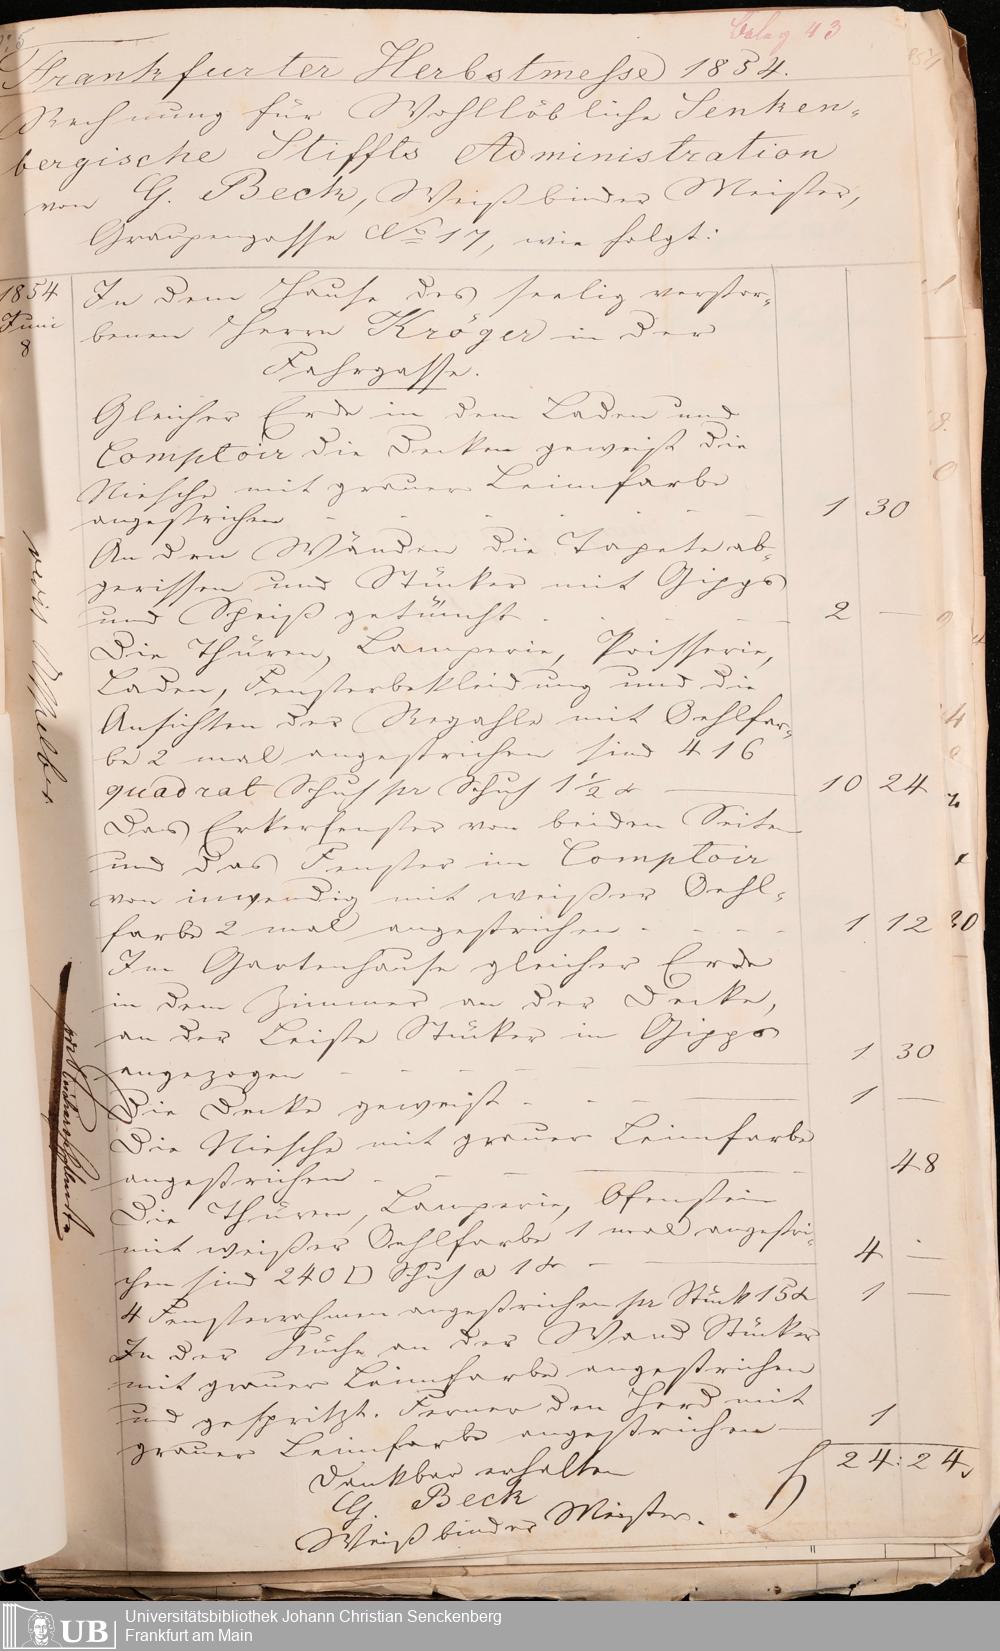 Beleg 43
Frankfurter Herbstmesse 1854.
Rechnung für Wohllöbliche Senken-
bergische Stiffts Administration
von G. Beck, Weißbinder Meister,
Graupengasse No 17, wie folgt:
1854
Juni
8
In dem Hause des seelig verstor-
benen Herrn Kröger in der
Fahrgasse.
Gleicher Erde in dem Laden und
Comptoir die Decken geweißt die
Niesche mit grauer Leimfarbe
angestrichen - - - - - - 1 30
An den Wänden die Tapete ab-
gerissen und Stücker mit Gipps
und Speiß getüncht - - - - 2 —
Die Thüren, Lamperie, Poisserie,
Laden, Fensterbekleidung und die
Ansichten der Regahle mit Oehlfar-
be 2 mal angestrichen sind 416
quadrat Schuh pr Schuh 1½ x — 10 24
Das Erkerfenster von beiden Seiten
und das Fenster im Comptoir
von inwendig mit weißer Oehl-
farbe 2 mal angestrichen - - - - 1 12
Im Gartenhause gleicher Erde
in dem Zimmer an der Decke,
an der Leiste Stücker in Gipps
angezogen - - - - - 1 30
Die Decke geweißt - - - — 1 —
Die Niesche mit grauer Leimfarbe
angestrichen - - - — 48
Die Thüren, Lamperie, Ofenstein
mit weißer Oehlfarbe 1 mal angestri-
chen sind 240 □ Schuh a 1 x - — 4 —
4 Fensterrahmen angestrichen pr Stück 15 x 1 —
In der Küche an der Wand Stücker
mit grauer Leimfarbe angestrichen
und gespritzt. Ferner den Herd mit
grauer Leimfarbe angestrichen — 1
f 24: 24
Dankbar erhalten
G. Beck
Weißbinder Meister.
UB
Universitätsbibliothek Johann Christian Senckenberg
Frankfurt am Main